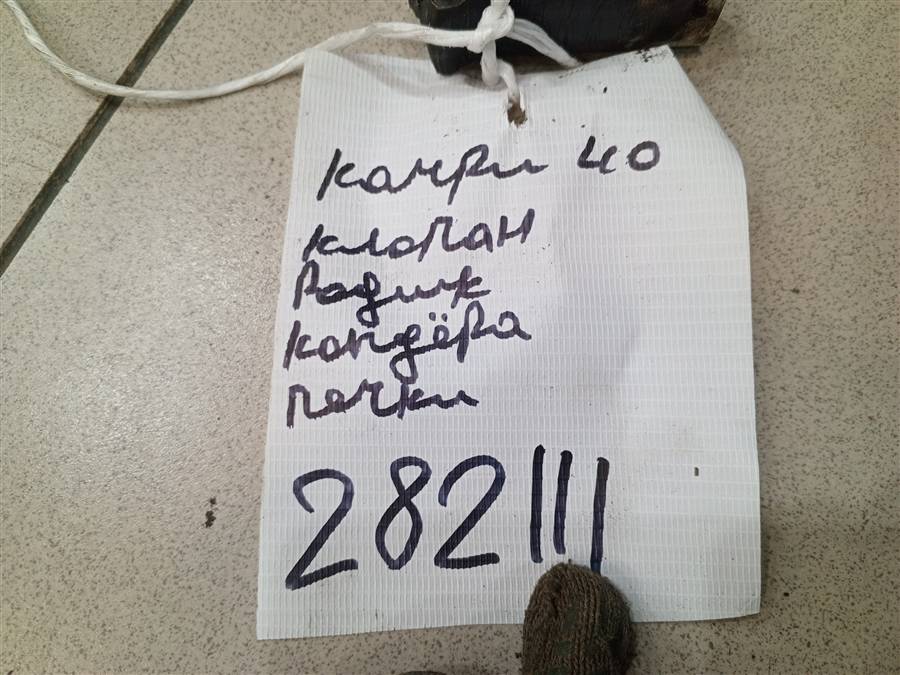 камри 40
клапан
Радик
кондёра
печки
282111